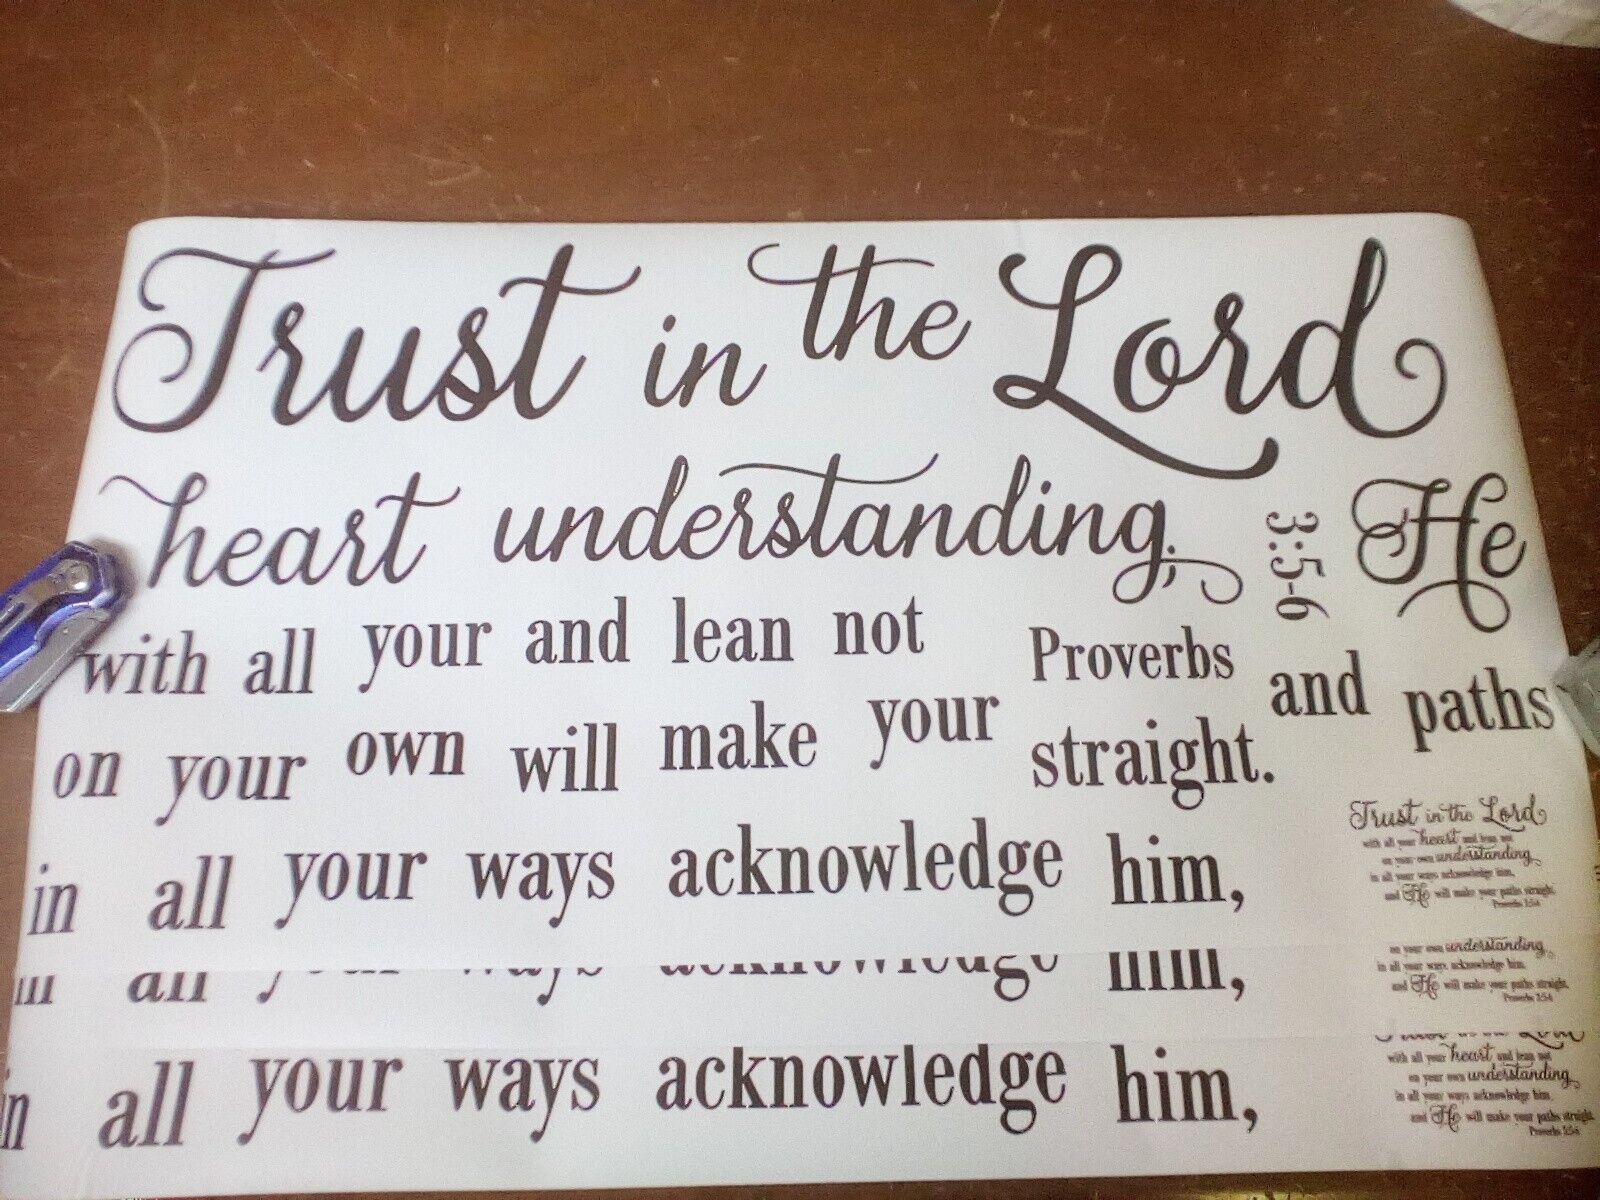 Trust in the Lord
heart understanding; 3:5-6 He
with all your and lean not Proverbs and paths
on your own will make your straight.
in all your ways acknowledge him,
Trust in the Lord
with all your heart and lean not
on your own understanding,
in all your ways acknowledge him,
and He will make your paths straight.
Proverbs 3:5-6
in all your ways acknowledge him,
on your own understanding,
in all your ways acknowledge him,
and He will make your paths straight.
Proverbs 3:5-6
in all your ways acknowledge him,
Trust in the Lord
with all your heart and lean not
on your own understanding,
in all your ways acknowledge him,
and He will make your paths straight.
Proverbs 3:5-6